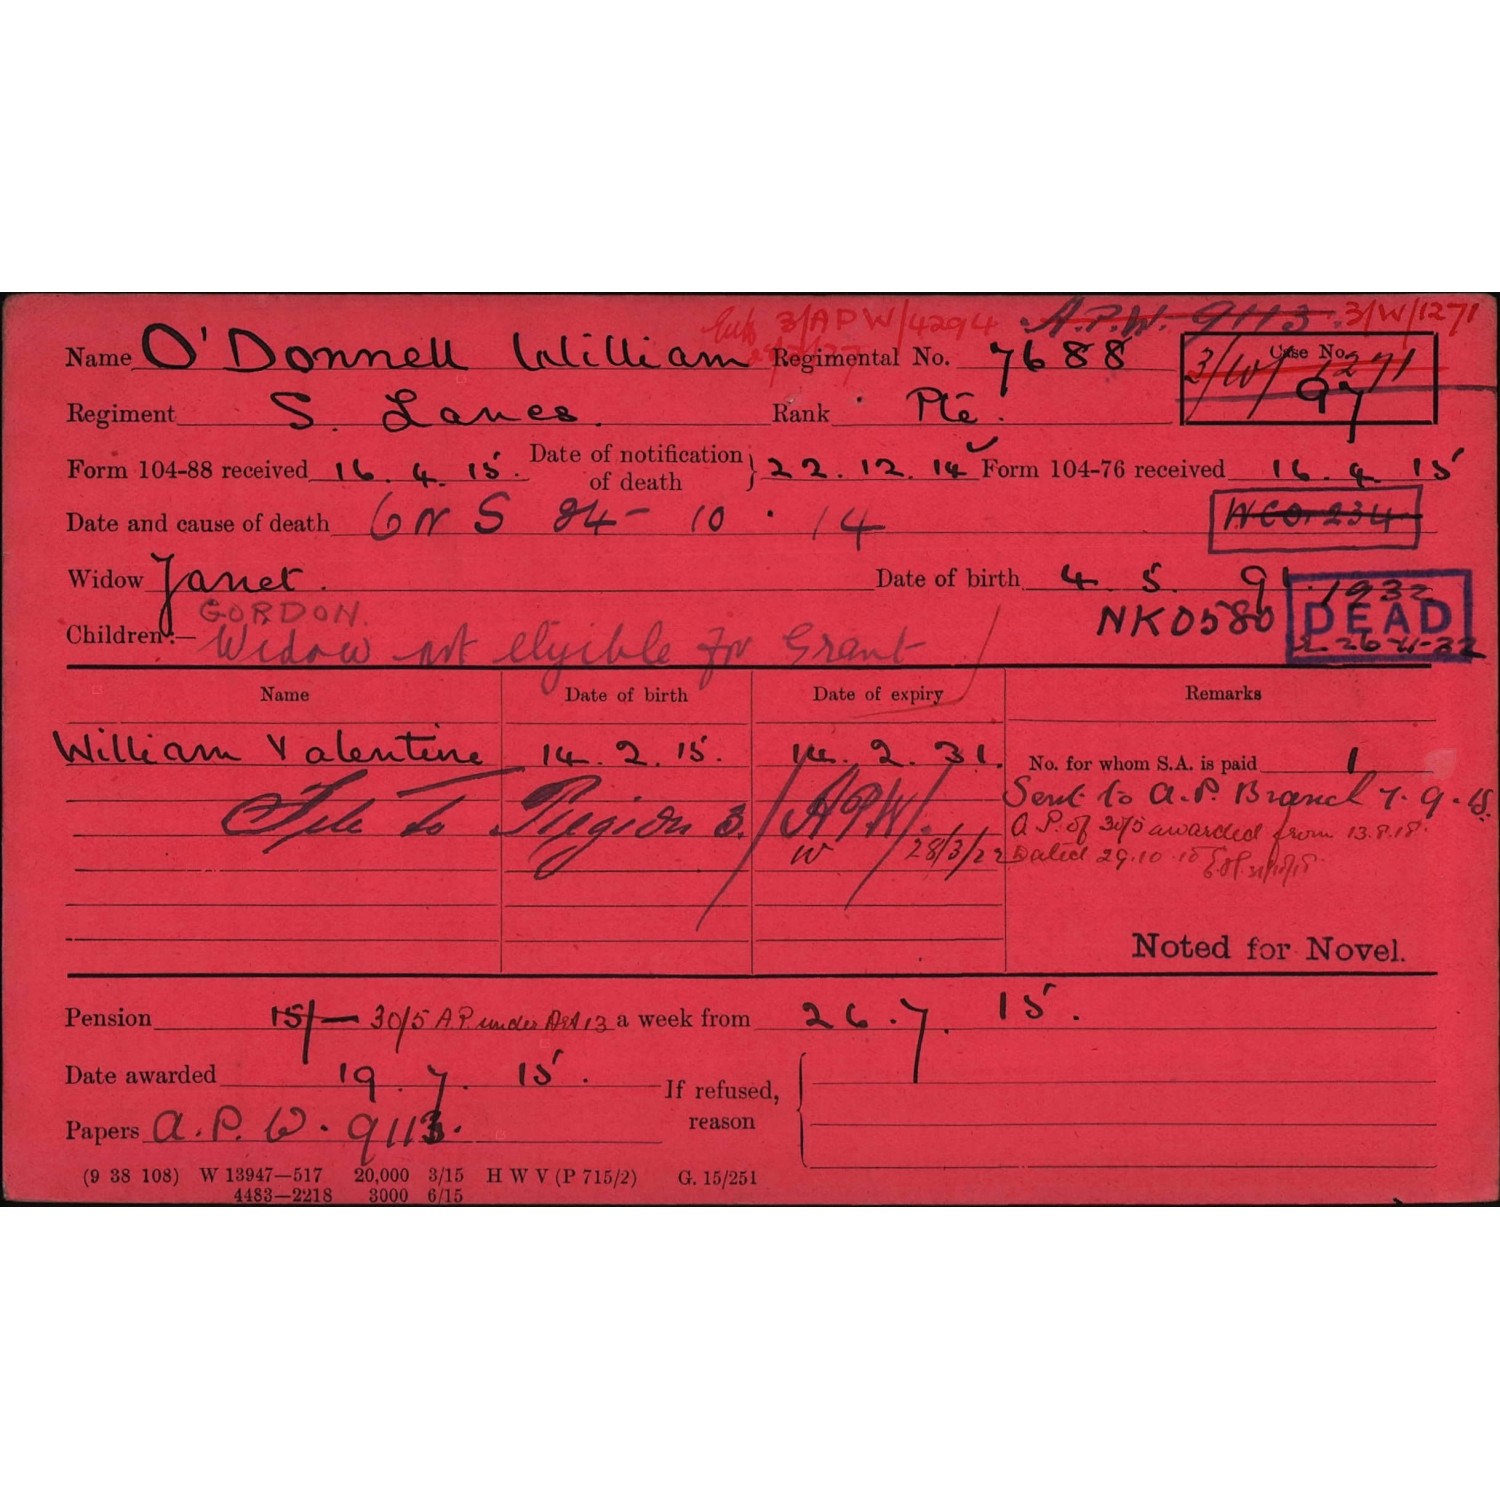 3/APW/4294 A.P.W. 9113. 3/W/1271
Name O'Donnell William Regimental No. 7688 Case No.
3/W/1271
97
Regiment S. Lancs. Rank Pte.
Form 104-88 received 16.4.15. Date of notification of death } 22.12.14 Form 104-76 received 16.4.15
Date and cause of death 24-10.14
WCO.234
Widow Janet. Date of birth 4.5.91.
GORDON. NK0580 1932
DEAD
Children:— Widow not eligible for Grant 26-4-32
Name Date of birth Date of expiry Remarks
William Valentine 14.2.15. 14.2.31. No. for whom S.A. is paid 1
Sent to A.P. Branch 7.9.15.
File to Region 3. /APW/. A.P. of 30/5 awarded from 13.8.15.
W 28/3/22 Dated 29.10.15
Noted for Novel.
Pension 15/- 30/5 A.P. under Art 13 a week from 26.7.15.
Date awarded 19.7.15. If refused,
reason
Papers A.P.W. 9113.
(9 38 108) W 13947—517 20,000 3/15 H W V (P 715/2) G. 15/251
4483—2218 3000 6/15